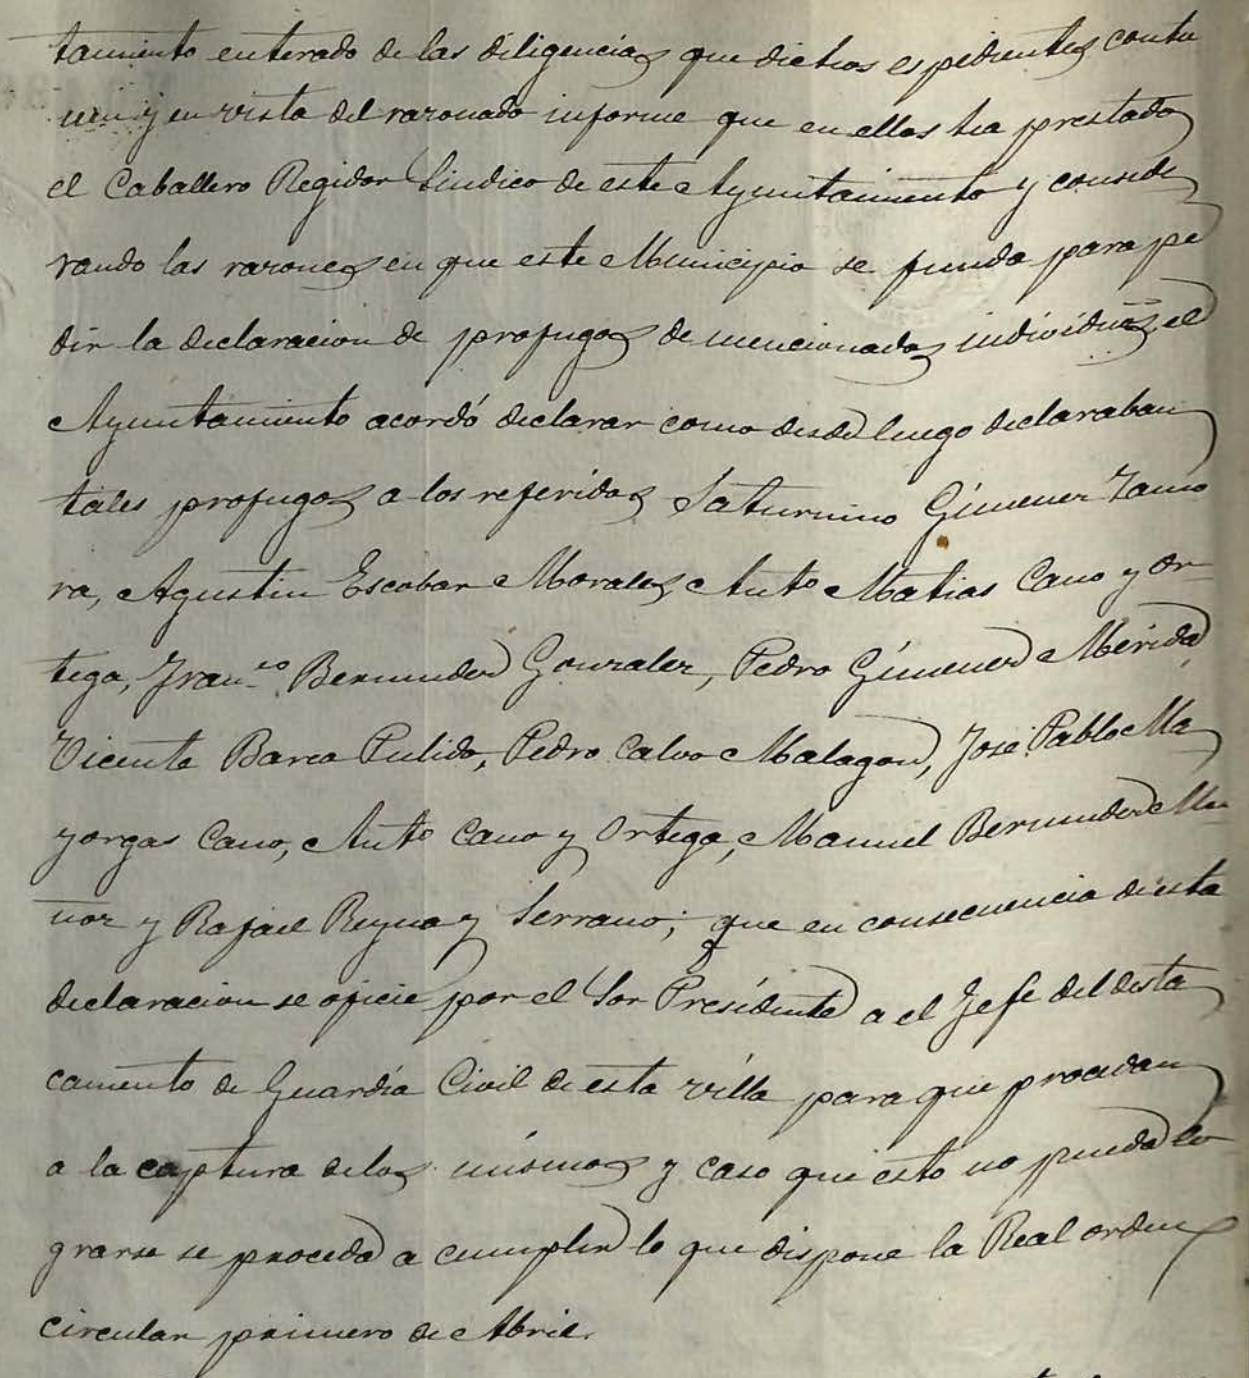 tamiento enterado de las diligencias que dichos espedientes contie
nen y en vista del razonado informe que en ellos ha prestado
el Caballero Regidor Sindico de este Ayuntamiento y conside
rando las razones en que este Municipio se funda para pe
dir la declaracion de profugos de mencionados individuos, el
Ayuntamiento acordó declarar como desde luego declaraban
tales profugos a los referidos Saturnino Gimenez Zamo
ra, Agustin Escobar Morales, Anto Matias Cano y Or
tega, Franco Bermudez Gonzalez, Pedro Gimenez Merida,
Vicente Barea Pulido, Pedro Calvo Malagon, José Pablo Ma
yorgas Cano, Anto Cano y Ortega, Manuel Bermudez Mu
ñoz y Rafael Reyna y Serrano; que en consecuencia de esta
declaracion se oficie por el Sor Presidente a el Jefe del desta
camento de Guardia Civil de esta villa para que procedan
a la captura de los mismos y caso que esto no pueda lo
grarse se proceda a cumplir lo que dispone la Real orden
circular primero de Abril.